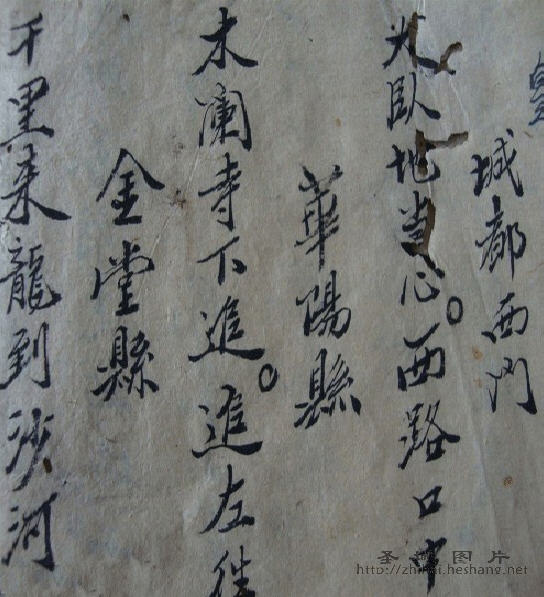 城都西門
犬臥地當心。西路口中
華陽縣
木蘭寺下進。進左往
金堂縣
千里来龍到沙河
圣地图片
http://zhihai.heshang.net